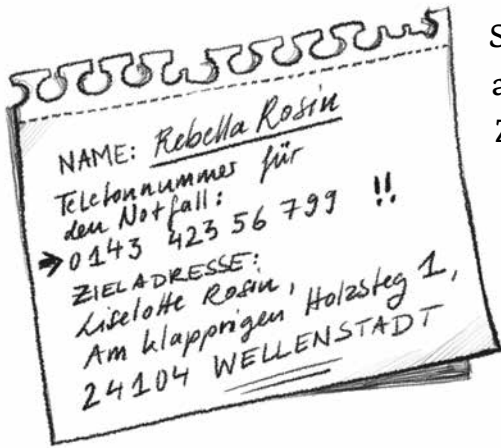 NAME: Rebella Rosin
Telefonnummer für
den Notfall:
→ 0143 423 56 799 !!
ZIELADRESSE:
Liselotte Rosin,
Am klapprigen Holzsteg 1,
24104 WELLENSTADT
S
a
Z